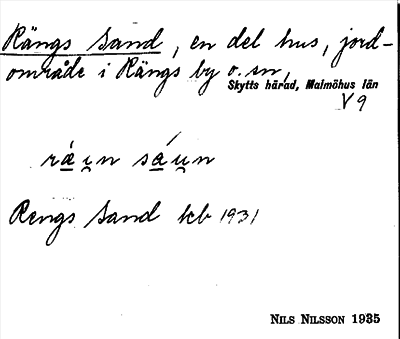 Rängs Sand, en del hus, jord-
område i Rängs by o. sn,
Skytts härad, Malmöhus län
V 9
rá̱u̯n sá̱u̯n
Rengs Sand kb 1931
NILS NILSSON 1935